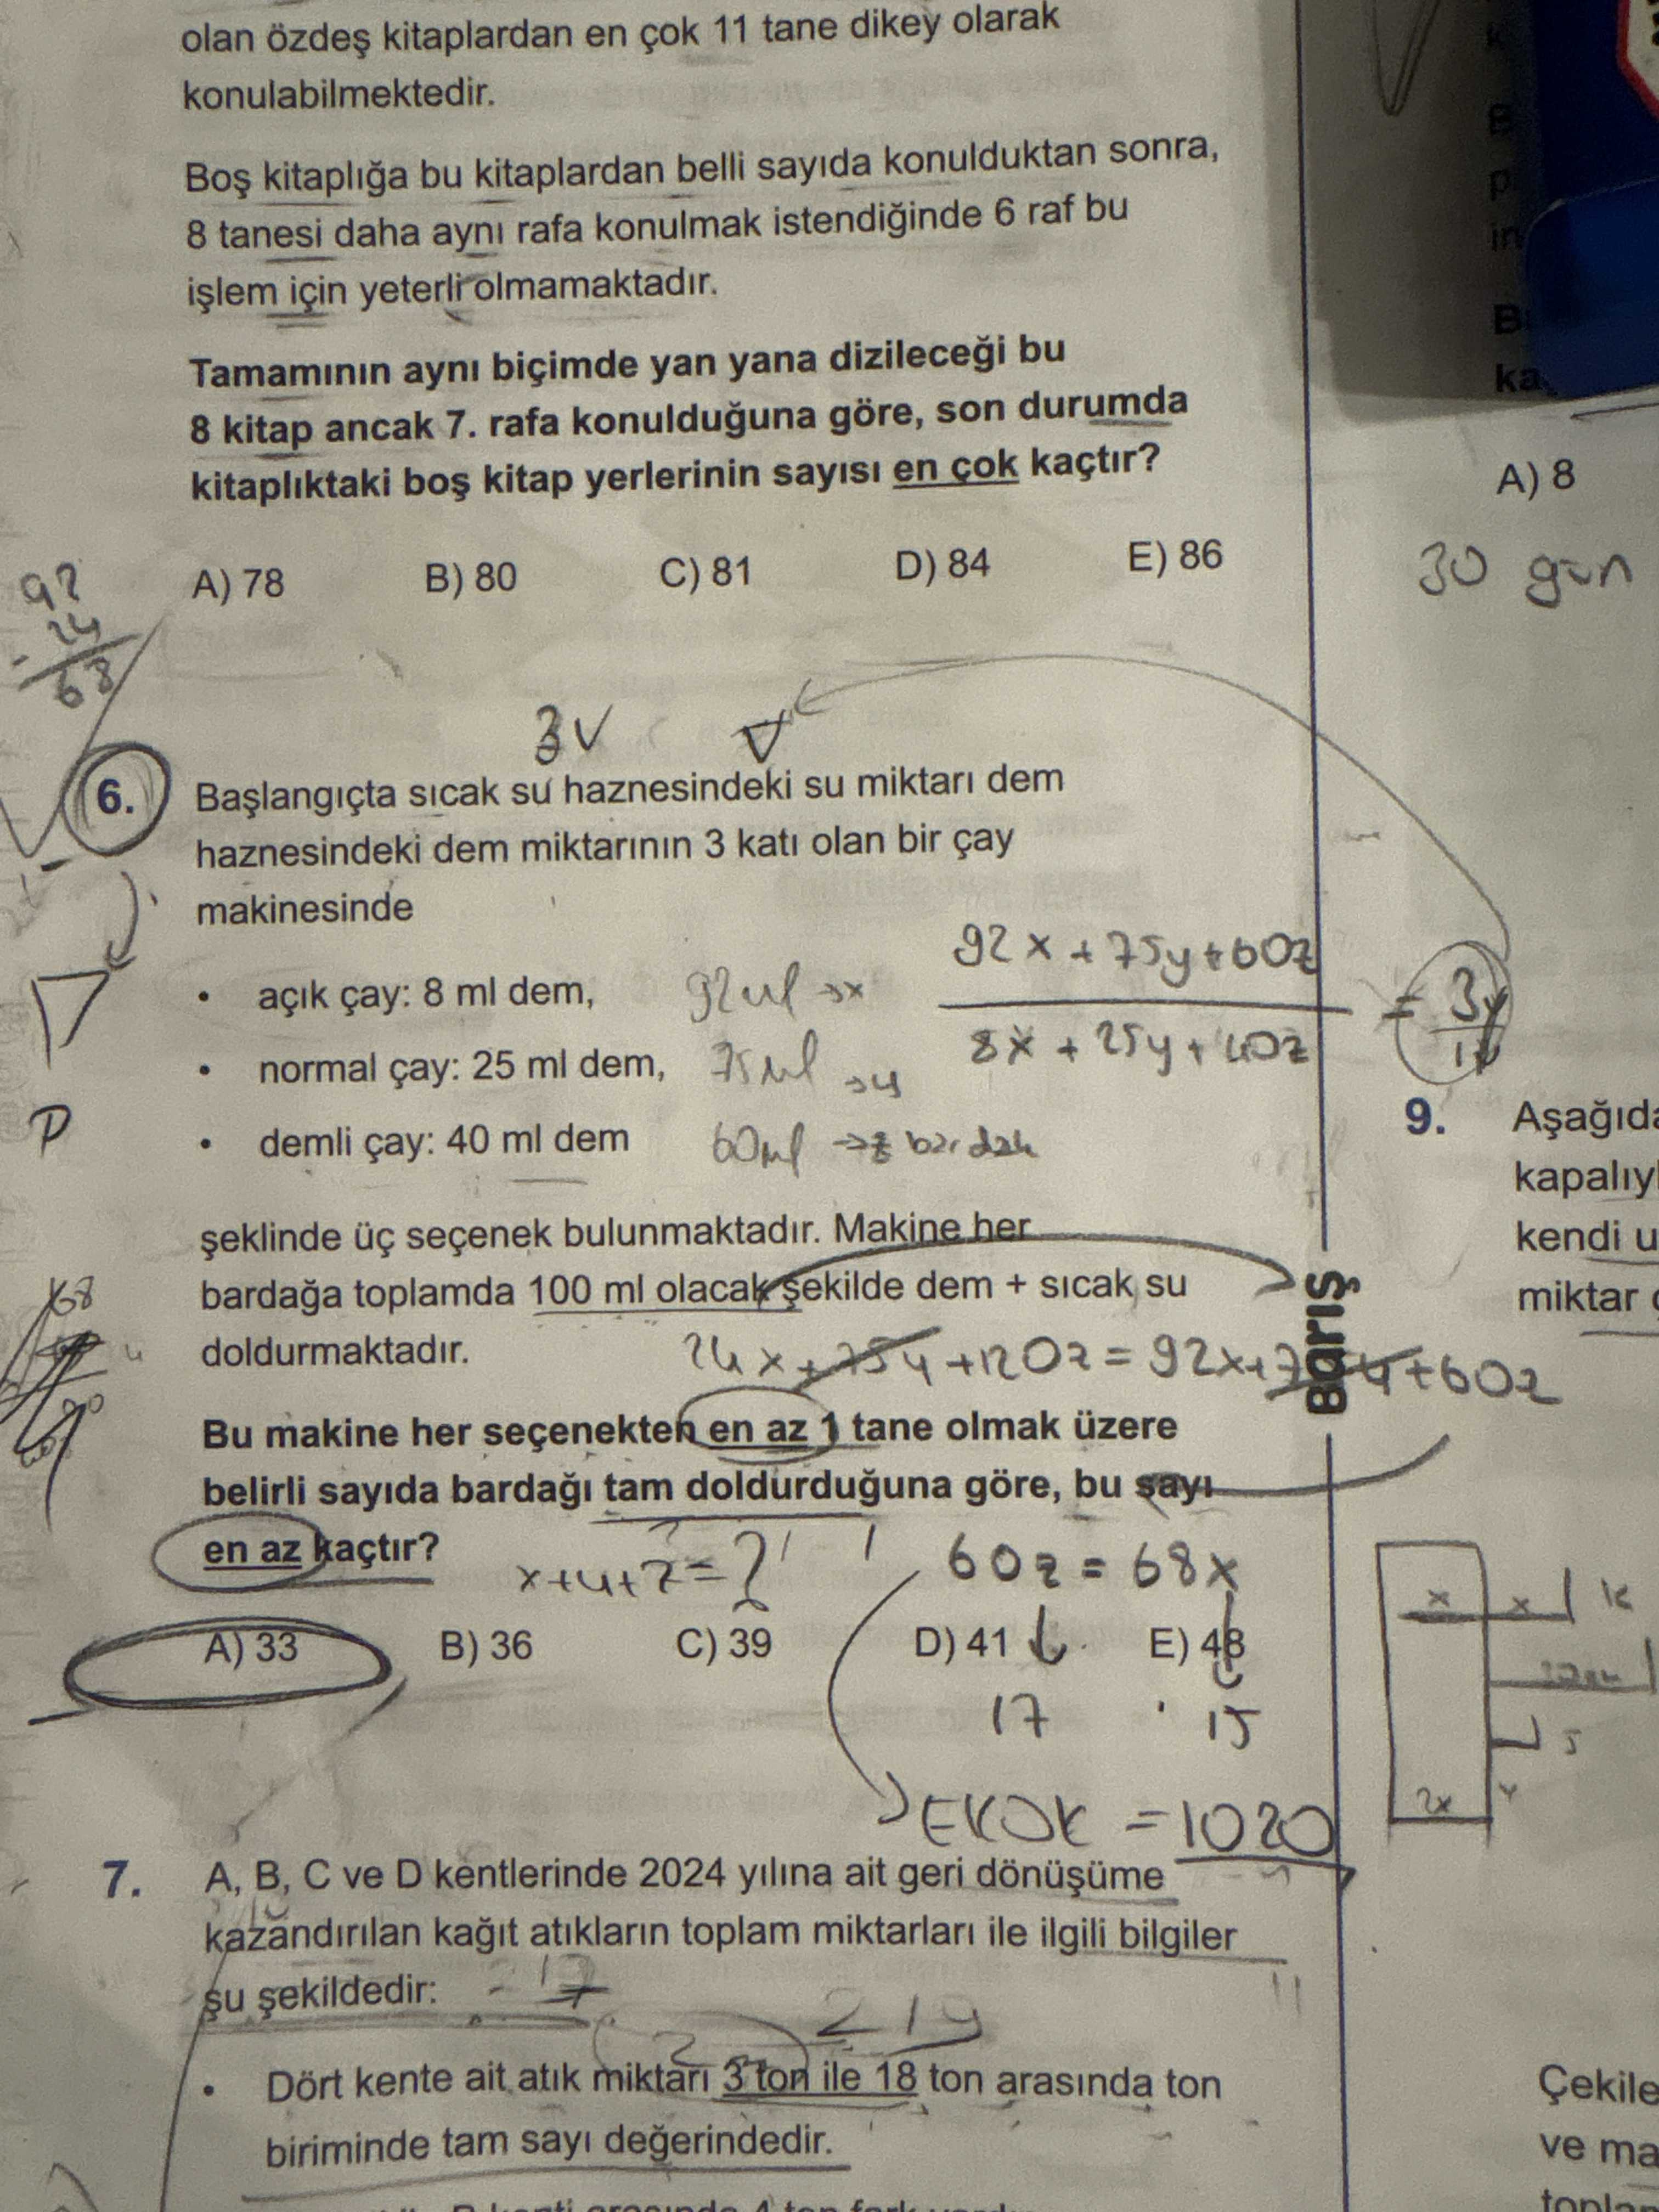 olan özdeş kitaplardan en çok 11 tane dikey olarak
konulabilmektedir.
Boş kitaplığa bu kitaplardan belli sayıda konulduktan sonra,
8 tanesi daha aynı rafa konulmak istendiğinde 6 raf bu
işlem için yeterli olmamaktadır.
Tamamının aynı biçimde yan yana dizileceği bu
8 kitap ancak 7. rafa konulduğuna göre, son durumda
kitaplıktaki boş kitap yerlerinin sayısı en çok kaçtır?
A) 78 B) 80 C) 81 D) 84 E) 86
92
- 24
68
3V V
6. Başlangıçta sıcak su haznesindeki su miktarı dem
haznesindeki dem miktarının 3 katı olan bir çay
makinesinde
• açık çay: 8 ml dem, 92ml → x
• normal çay: 25 ml dem, 75ml → y
• demli çay: 40 ml dem 60ml → z bardak
92x + 75y + 60z
8x + 25y + 40z
=
şeklinde üç seçenek bulunmaktadır. Makine her
bardağa toplamda 100 ml olacak şekilde dem + sıcak su
doldurmaktadır.
24x + 75y + 120z = 92x + 75y + 60z
Bu makine her seçenekten en az 1 tane olmak üzere
belirli sayıda bardağı tam doldurduğuna göre, bu sayı
en az kaçtır?
x+y+z=?
60z = 68x
A) 33 B) 36 C) 39 D) 41 E) 48
17 15
EKOK = 1020
7. A, B, C ve D kentlerinde 2024 yılına ait geri dönüşüme
kazandırılan kağıt atıkların toplam miktarları ile ilgili bilgiler
şu şekildedir:
• Dört kente ait atık miktarı 3 ton ile 18 ton arasında ton
biriminde tam sayı değerindedir.
Barış
A) 8
30 gün
9. Aşağıda
kapalıy
kendi u
miktar
x x
2x
Çekile
ve ma